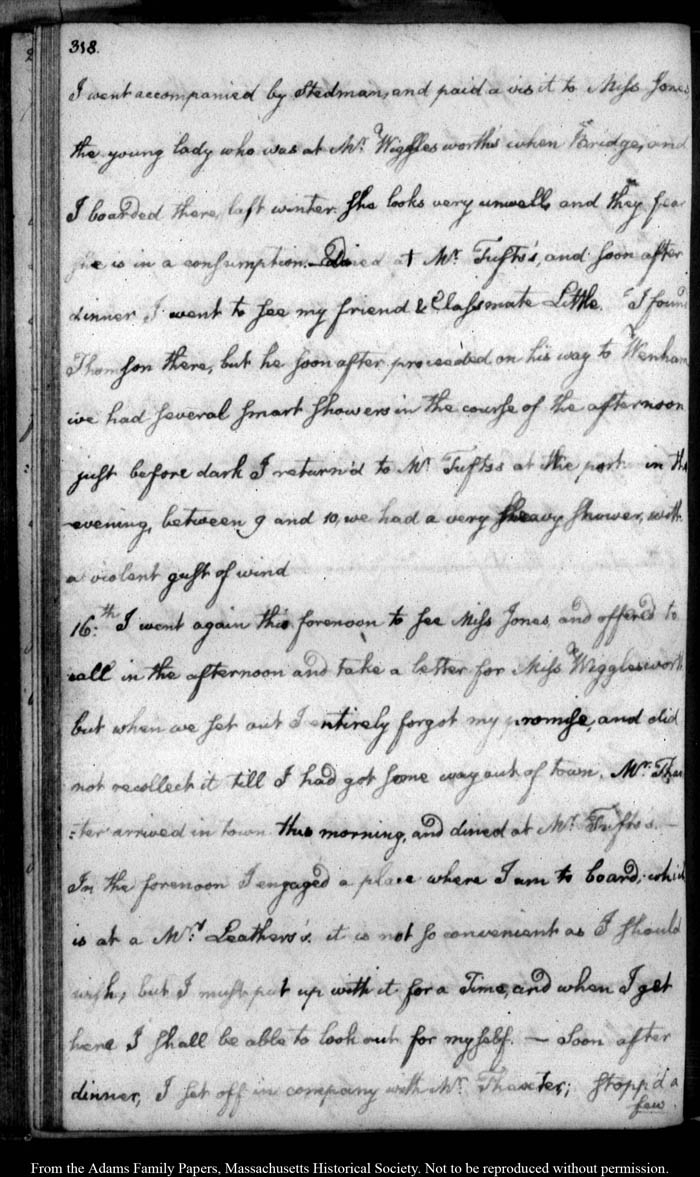 318.
I went accompanied by Stedman, and paid a visit to Miss Jones
the young lady who was at Mr. Wigglesworth's when Bridge, and
I boarded there, last winter. She looks very unwell, and they fear
she is in a consumption. — Dined at Mr. Tufts's, and soon after
dinner I went to see my friend & Classmate Little. I found
Thomson there, but he soon after proceeded on his way to Wenham
we had several smart showers in the course of the afternoon
just before dark I return'd to Mr. Tufts's at the port. in the
evening, between 9 and 10, we had a very heavy shower, with
a violent gust of wind
16.th I went again this forenoon to see Miss Jones, and offered to
call in the afternoon and take a letter for Miss Wigglesworth
but when we set out I entirely forgot my promise, and did
not recollect it till I had got some way out of town. Mr. Thax
:ter arrived in town this morning, and dined at Mr. Tufts's. —
In the forenoon I engaged a place where I am to board, which
is at a Mrs. Leathers's. it is not so convenient as I should
wish, but I must put up with it for a Time, and when I get
here I shall be able to look out for myself. — Soon after
dinner, I set off in company with Mr. Thaxter; stopp'd a
few
From the Adams Family Papers, Massachusetts Historical Society. Not to be reproduced without permission.